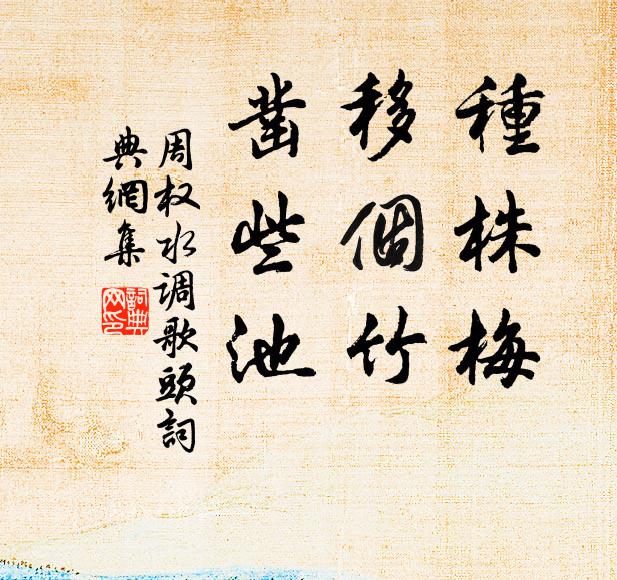 種株梅
移個竹
凿些池
周权水调歌頭詞
典網集
詞典
网印